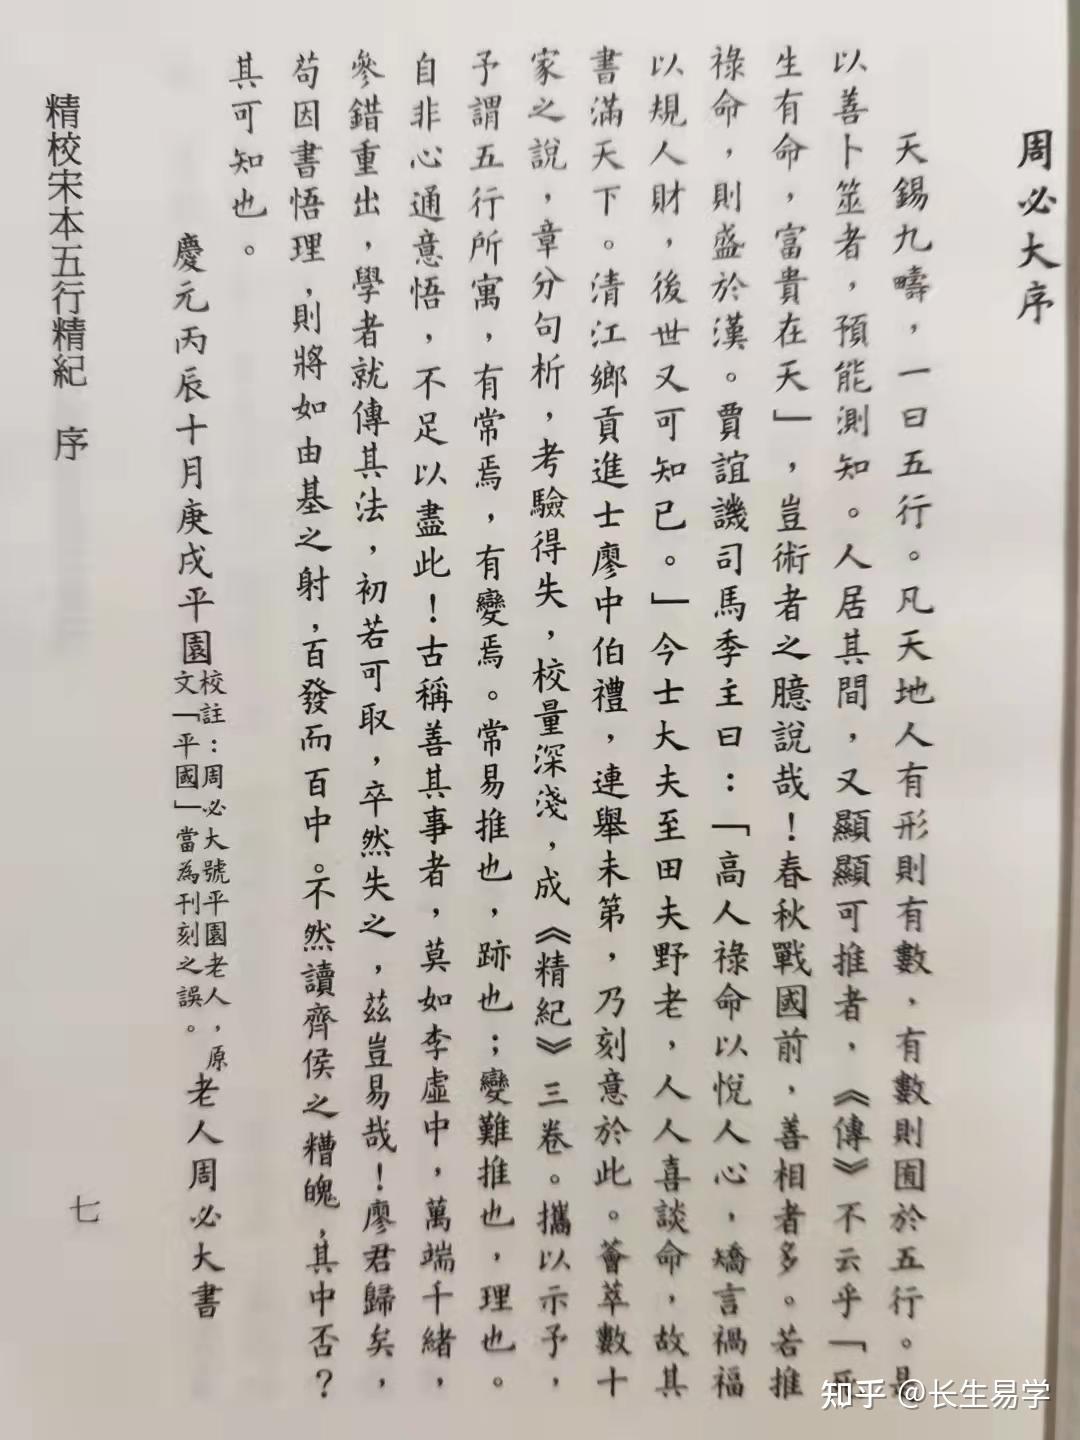 周必大序
天錫九疇，一曰五行。凡天地人有形則有數，有數則囿於五行。是
以善卜筮者，預能測知。人居其間，又顯顯可推者，《傳》不云乎「死
生有命，富貴在天」，豈術者之臆說哉！春秋戰國前，善相者多。若推
祿命，則盛於漢。賈誼譏司馬季主曰：「高人祿命以悅人心，矯言禍福
以規人財，後世又可知已。」今士大夫至田夫野老，人人喜談命，故其
書滿天下。清江鄉貢進士廖中伯禮，連舉未第，乃刻意於此。薈萃數十
家之說，章分句析，考驗得失，校量深淺，成《精紀》三卷。攜以示予，
予謂五行所寓，有常焉，有變焉。常易推也，跡也；變難推也，理也。
自非心通意悟，不足以盡此！古稱善其事者，莫如李虛中，萬端千緒，
參錯重出，學者就傳其法，初若可取，卒然失之，茲豈易哉！廖君歸矣，
苟因書悟理，則將如由基之射，百發而百中。不然讀齊侯之糟魄，其中否？
其可知也。
慶元丙辰十月庚戌平園校註：周必大號平園老人，原文「平國」當為刊刻之誤。老人周必大書
精校宋本五行精紀 序
七
知乎 @长生易学